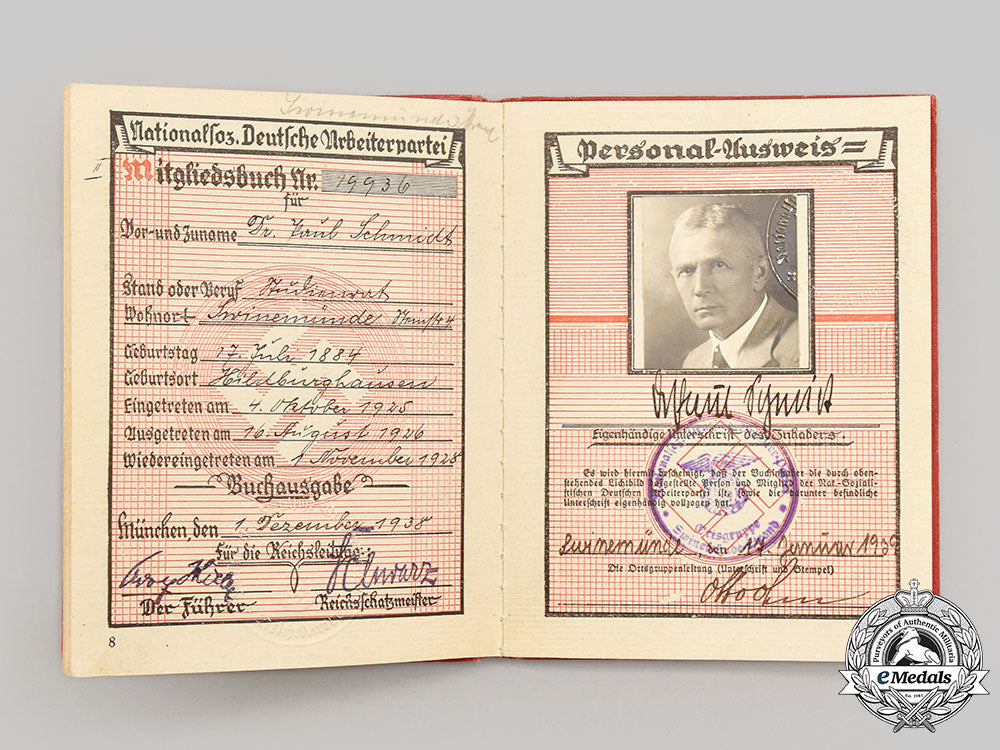 Nationalsoz. Deutsche Arbeiterpartei
II
Mitgliedsbuch Nr. 19936
für
Vor- und Zuname Dr. Paul Schmidt
Stand oder Beruf Studienrat
Wohnort Swinemünde
Geburtstag 17. Juli 1884
Geburtsort Hildburghausen
Eingetreten am 4. Oktober 1925
Ausgetreten am 16. August 1926
Wiedereingetreten am 1 November 1928
Buchausgabe
München, den 1. Dezember 1938
Für die Reichsleitung:
Schwarz
Der Führer Reichsschatzmeister
8
Personal-Ausweis
Eigenhändige Unterschrift des Inhabers
Es wird hiermit bescheinigt, daß der Buchinhaber die durch oben-
stehendes Lichtbild dargestellte Person und Mitglied der Nat.-Soziali-
stischen Deutschen Arbeiterpartei ist, sowie die darunter befindliche
Unterschrift eigenhändig vollzogen hat.
Ortsgruppe
Swinemünde, den Januar 1939
Die Ortsgruppenleitung (Unterschrift und Stempel)
Purveyors of Authentic Militaria
eMedals